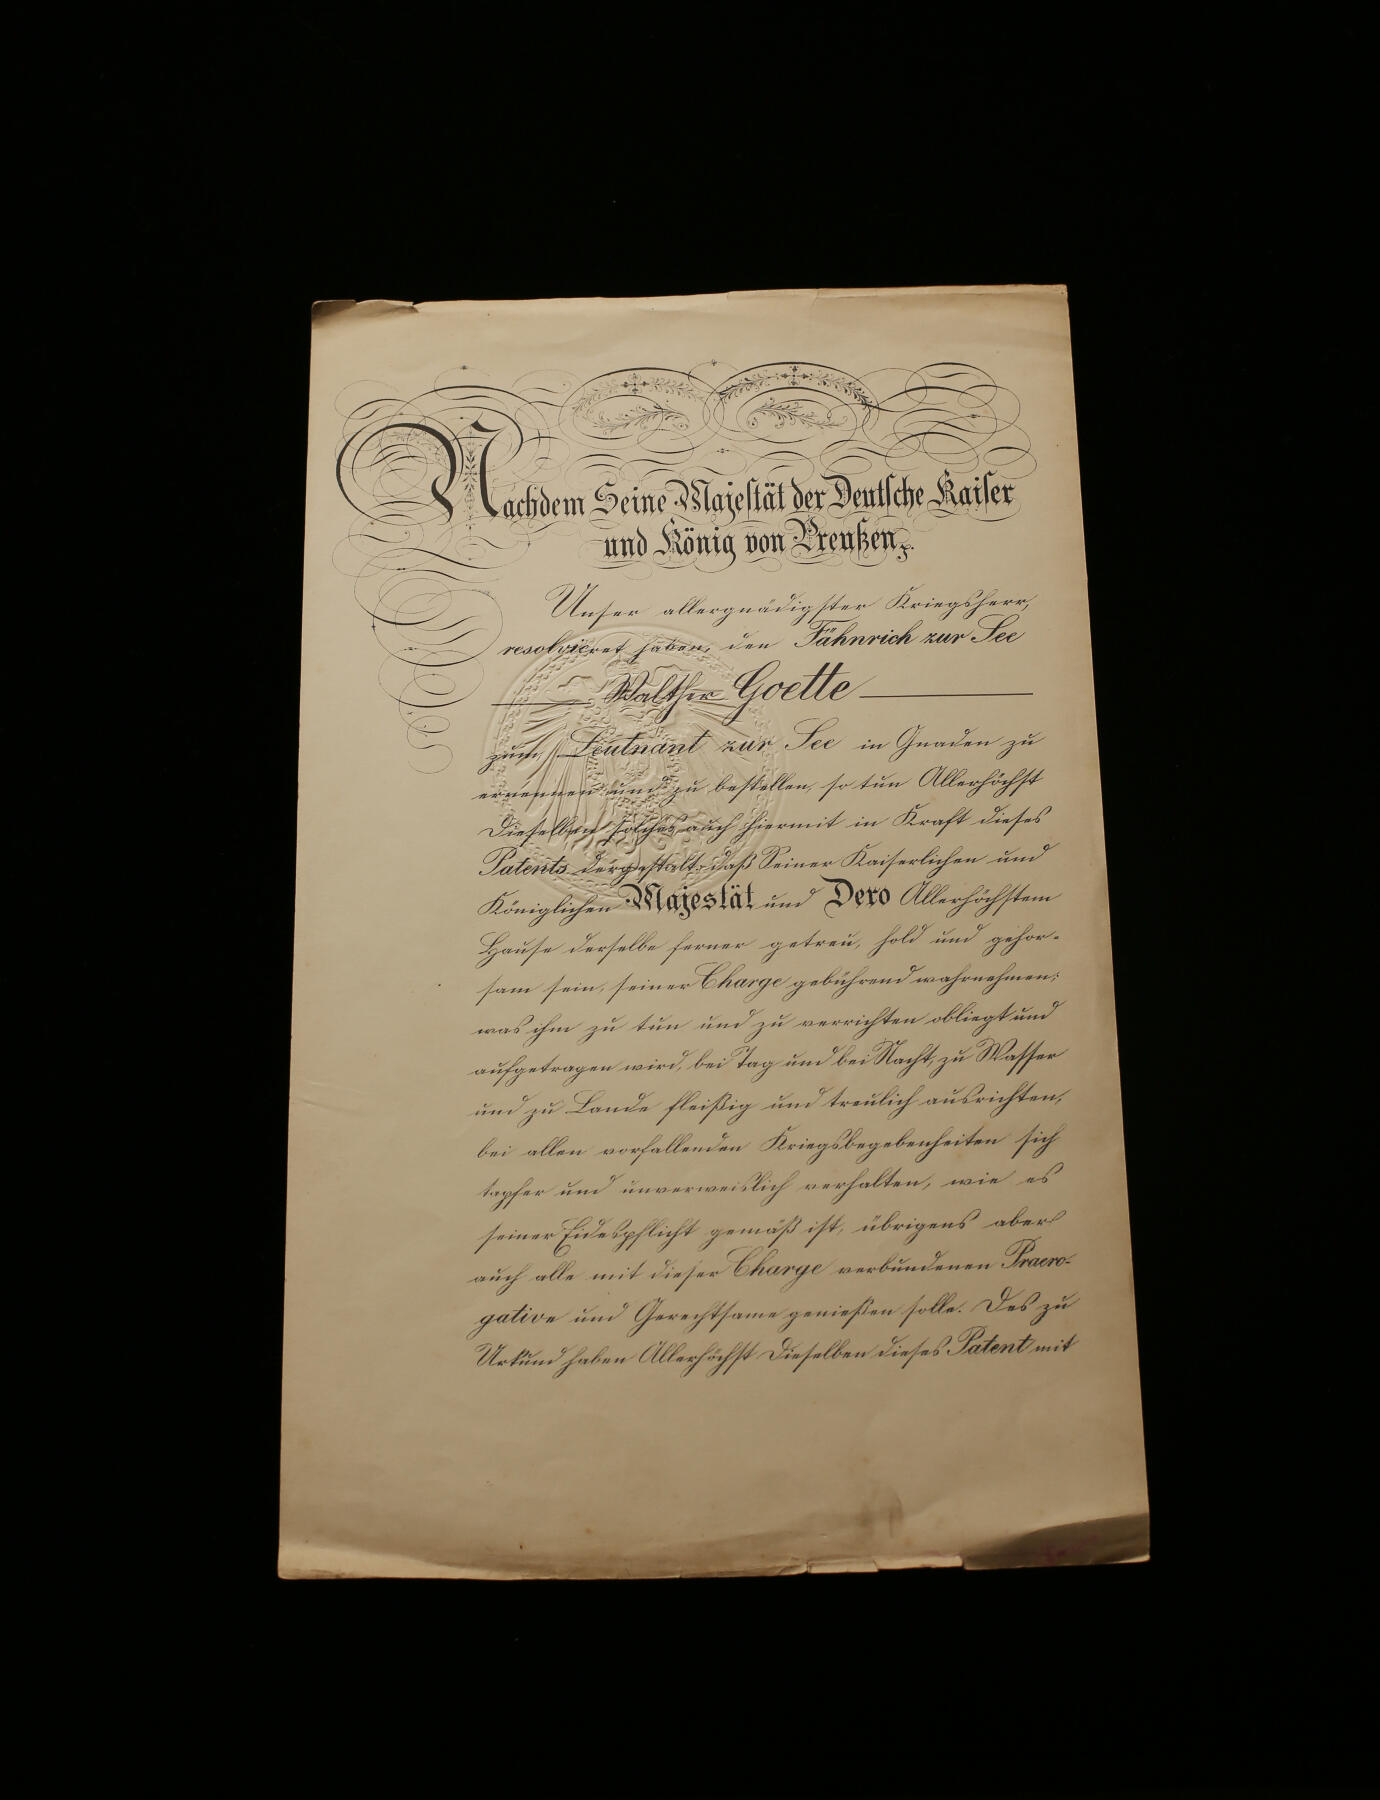 Nachdem Seine Majestät der Deutsche Kaiser
und König von Preußen, p.
Unser allergnädigster Kriegsherr,
resolvieret haben, den Fähnrich zur See
Walther Goette
zum Leutnant zur See in Gnaden zu
ernennen und zu bestellen, so tun Allerhöchst
Dieselben solches auch hiermit in Kraft dieses
Patents dergestalt, daß Seiner Kaiserlichen und
Königlichen Majestät und Dero Allerhöchstem
Hause derselbe ferner getreu, hold und gehor-
sam sein, seiner Charge gebührend wahrnehmen;
was ihm zu tun und zu verrichten obliegt und
aufgetragen wird, bei Tag und bei Nacht, zu Wasser
und zu Lande fleißig und treulich ausrichten,
bei allen vorfallenden Kriegsbegebenheiten sich
tapfer und unverweislich verhalten, wie es
seiner Eidespflicht gemäß ist, übrigens aber
auch alle mit dieser Charge verbundenen Praero-
gative und Gerechtsame genießen solle. Des zu
Urkund haben Allerhöchst Dieselben dieses Patent mit